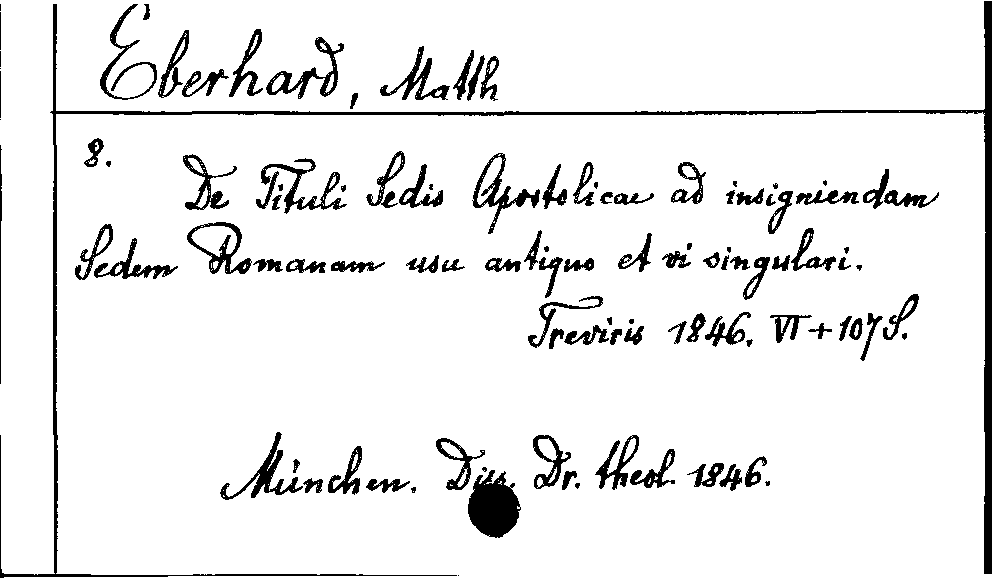 Eberhard, Matth
8.
De Tituli Sedis Apostolicae ad insigniendam
Sedem Romanam usu antiquo et vi singulari.
Treviris 1846. VI + 107 S.
München. Diss. Dr. theol. 1846.